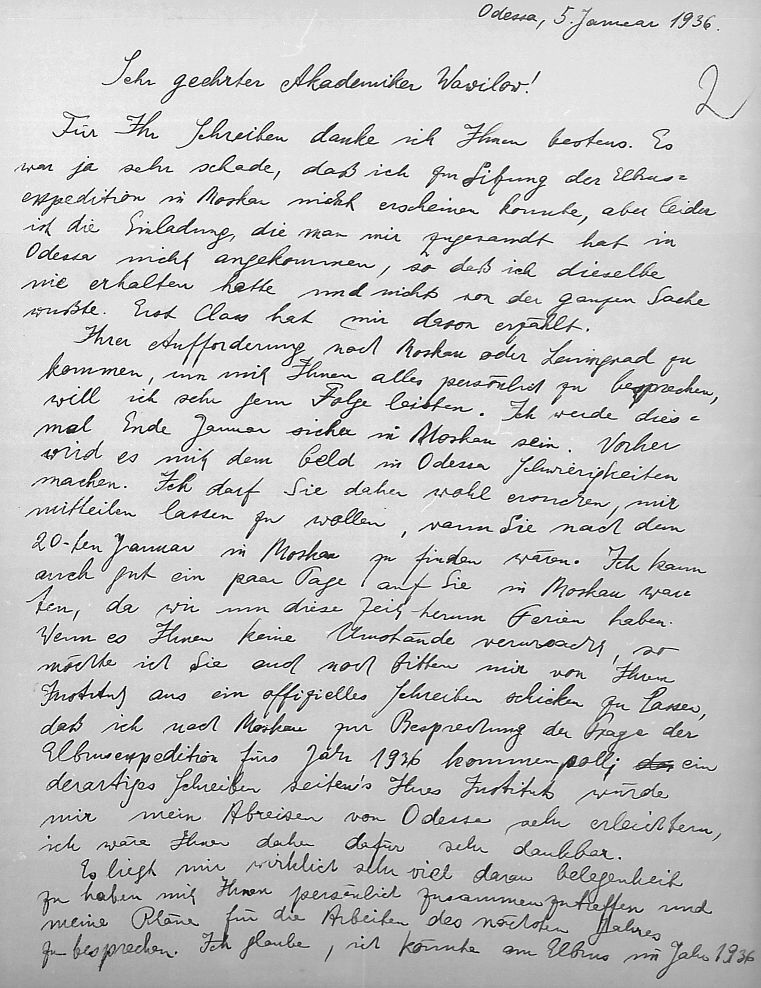 Odessa, 5. Januar 1936.
2
Sehr geehrter Akademiker Wawilow!
Für Ihr Schreiben danke ich Ihnen bestens. Es
war ja sehr schade, daß ich zur Sitzung der Elbrus=
expedition in Moskau nicht erscheinen konnte, aber leider
ist die Einladung, die man mir zugesandt hat in
Odessa nicht angekommen, so daß ich dieselbe
nie erhalten hatte und nichts von der ganzen Sache
wußte. Erst Class hat mir davon erzählt.
Ihrer Aufforderung nach Moskau oder Leningrad zu
kommen, um mit Ihnen alles persönlich zu besprechen,
will ich sehr gern Folge leisten. Ich werde dies=
mal Ende Januar sicher in Moskau sein. Vorher
wird es mit dem Geld in Odessa Schwierigkeiten
machen. Ich darf Sie daher wohl ersuchen, mir
mitteilen lassen zu wollen, wann Sie nach dem
20-ten Januar in Moskau zu finden wären. Ich kann
auch gut ein paar Tage auf Sie in Moskau war=
ten, da wir um diese Zeit herum Ferien haben.
Wenn es Ihnen keine Umstände verursacht, so
möchte ich Sie auch noch bitten mir von Ihrem
Institut aus ein offizielles Schreiben schicken zu lassen,
daß ich nach Moskau zur Besprechung der Frage der
Elbrusexpedition fürs Jahr 1936 kommen soll; ein
derartiges Schreiben seiten's Ihres Instituts würde
mir mein Abreisen von Odessa sehr erleichtern,
ich wäre Ihnen daher dafür sehr dankbar.
Es liegt mir wirklich sehr viel daran Gelegenheit
zu haben mit Ihnen persönlich zusammenzutreffen und
meine Pläne für die Arbeiten des nächsten Jahres
zu besprechen. Ich glaube, ich könnte am Elbrus im Jahr 1936